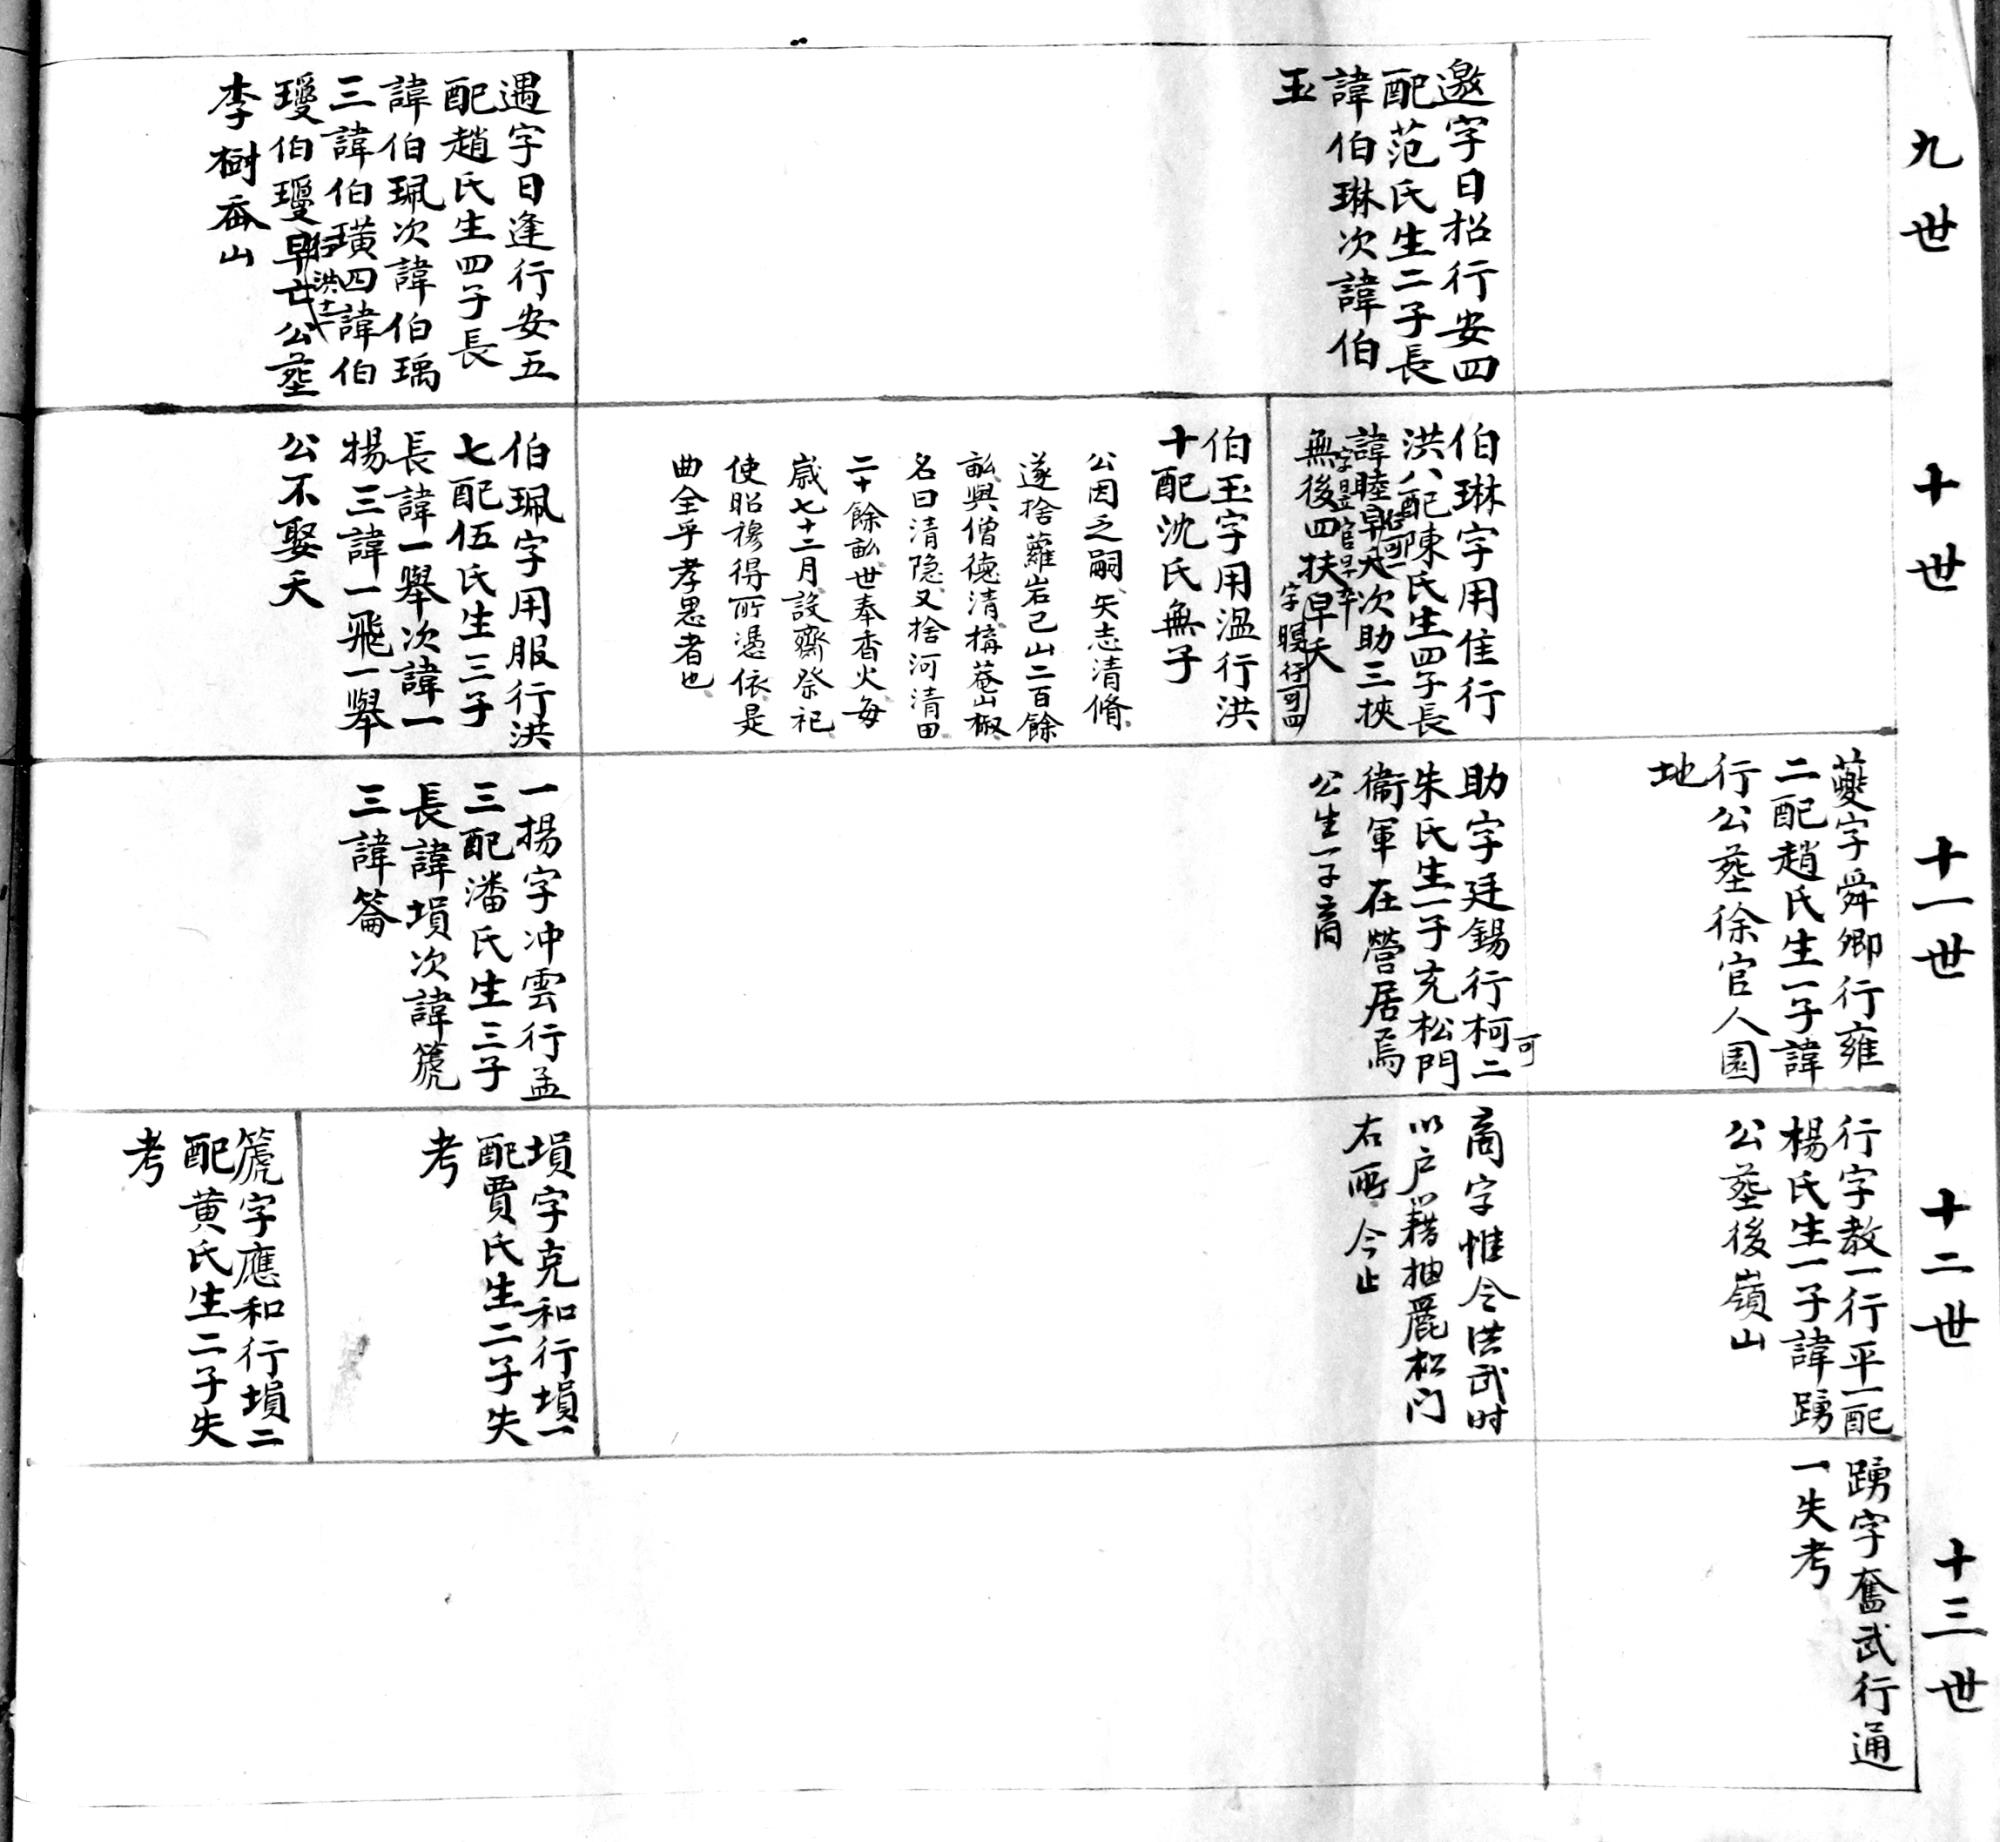 九世
邀字日招行安四
配范氏生二子長
諱伯琳次諱伯
玉
遇字日逢行安五
配趙氏生四子長
諱伯珮次諱伯瑀
三諱伯璜四諱伯
瓊伯瓊早亡公塟
行洪十二
李樹岙山
十世
伯琳字用隹行
洪八配陳氏生四子長
諱睦早夭次助三挾
行可一
字昱官早卒
無後四扶早夭
字行可四
伯玉字用溫行洪
十配沈氏無子
公因乏嗣矢志清脩
遂捨蘿岩己山二百餘
畝與僧德清搆菴山椒
名曰清隐又捨河清田
二十餘畝世奉香火每
歲七十二月設齋祭祀
使昭穆得所憑依是
曲全乎孝思者也
伯珮字用服行洪
七配伍氏生三子
長諱一舉次諱一
揚三諱一飛一舉
公不娶夭
十一世
夔字舜卿行雍
二配趙氏生一子諱
行公塟徐官人園
地
助字廷錫行柯二
可
朱氏生一子充松門
衞軍在營居焉
公生一子商
一揚字冲雲行孟
三配潘氏生三子
長諱塤次諱篪
三諱籥
十二世
行字教一行平一配
楊氏生一子諱踴
公塟後嶺山
商字惟今洪武时
以户籍抽麗松门
右所今止
塤字克和行塤一
配賈氏生二子失
考
篪字應和行塤二
配黄氏生二子失
考
十三世
踴字奮武行通
一失考